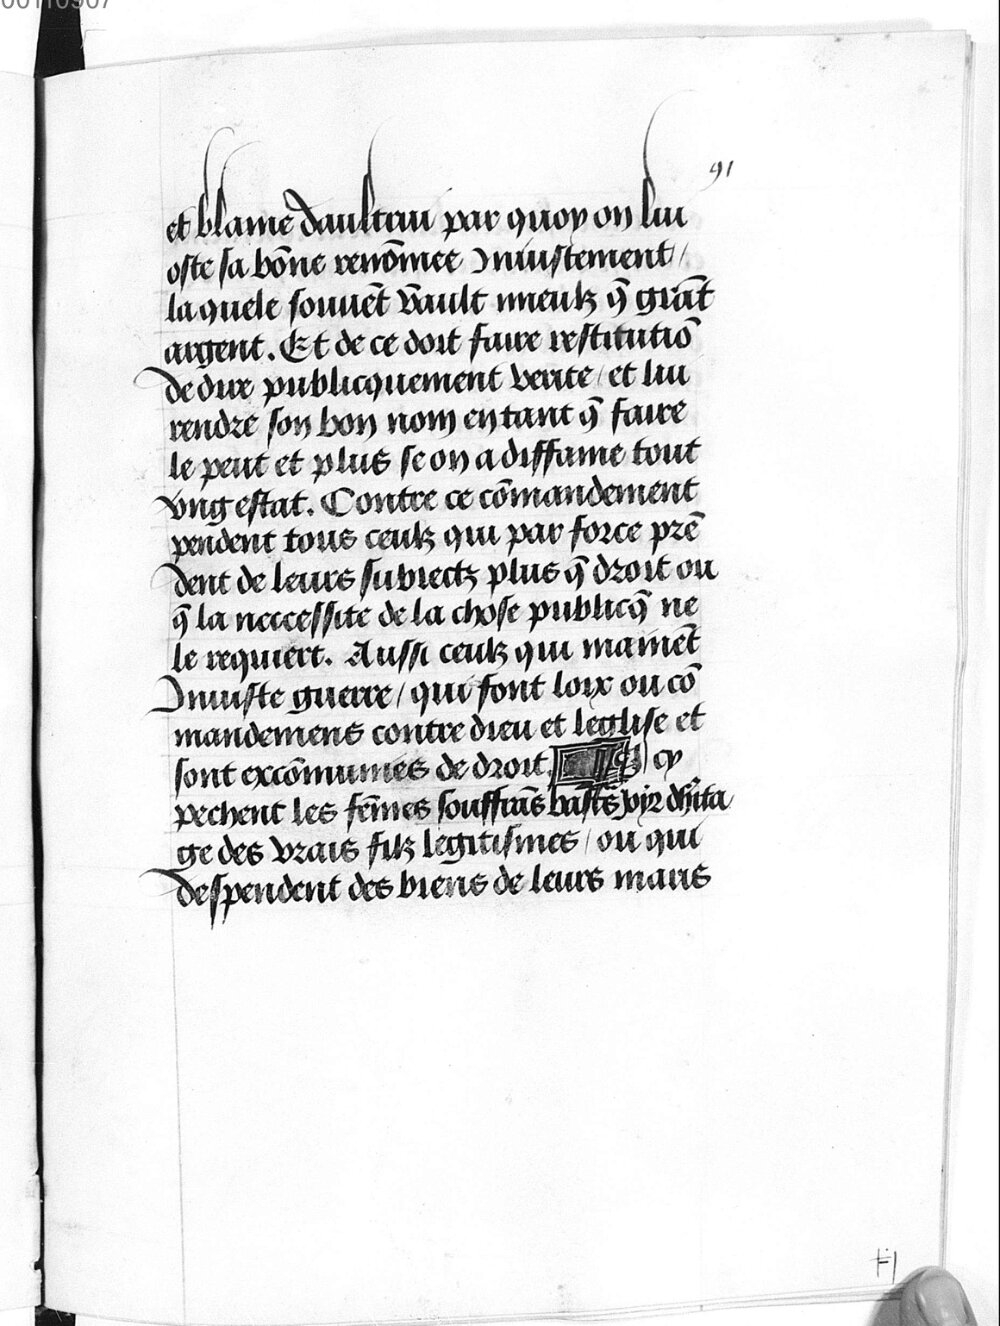 91
et blame daultruy par quoy on luy
oste sa bōne renōmee Iniustement /
la quele souuēt vault mieulx q̄ grāt
argent. Et de ce doit faire restitutiō
de dire publicquement verite / et luy
rendre son bon nom en tant q̄ faire
le peut et plus se on a diffame tout
vng estat. Contre ce cōmandement
pendent tous ceulx qui par force prē
dent de leurs subiectz plus q̄ droit ou
q̄ la neccessite de la chose publicq̄ ne
le requiert. Aussi ceulx qui mainēt
Iniuste guerre / qui font loix ou cō
mandemens contre dieu et leglise et
sont excōmunies de droit. cy
pechent les fēmes souffrās dh̄ita
ge des vrais filz legitismes / ou qui
despendent des biens de leurs maris